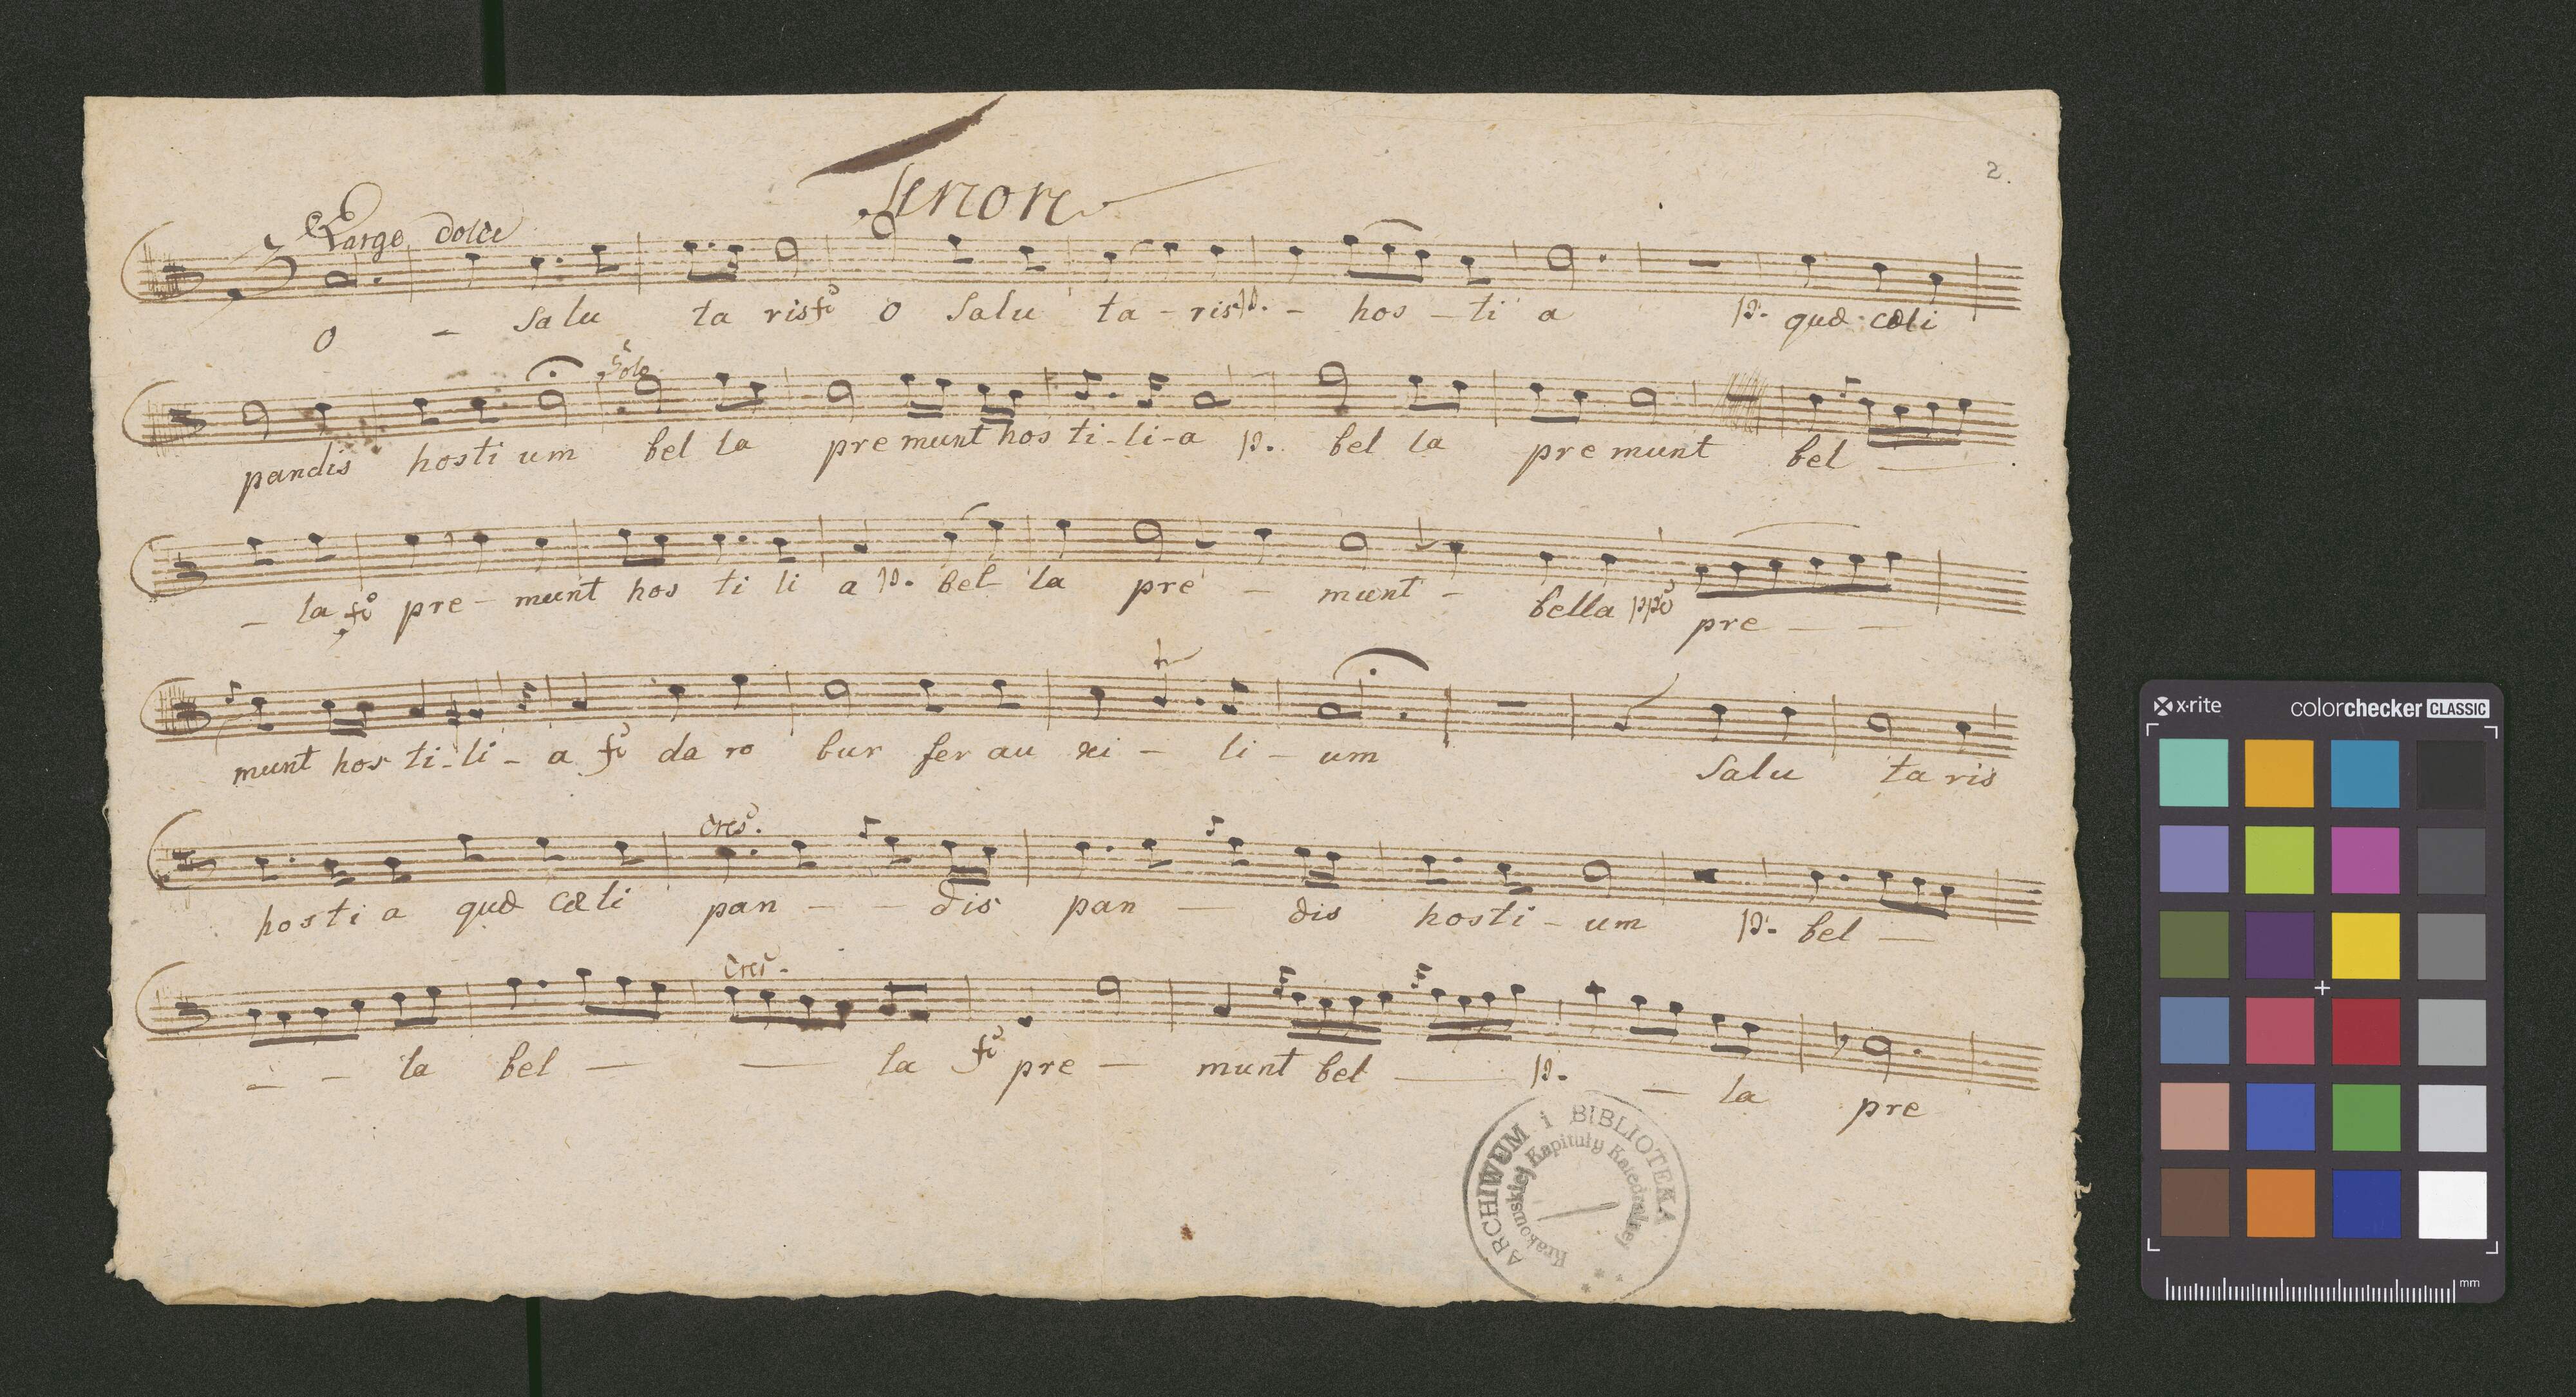 2.
Tenore
Largo dolce
O - Salu ta ris fo O Salu ta - ris p. - hos - ti a p. quæ cœli
Solo
pandis hosti um bel la pre munt hos ti - li - a p. bel la pre munt bel -
- la fo pre - munt hos ti li a p. bel la pre - munt - bella ppo pre - -
munt hos ti - li - a fo da ro bur fer au xi - li - um Salu ta ris
cres.
hosti a quæ cœli pan - - dis pan - dis hosti - um p. bel -
cres.
- - la bel - - la fo pre - munt bel - p. - la pre
ARCHIWUM i BIBLIOTEKA
Krakowskiej Kapituły Katedralnej
x-rite colorchecker CLASSIC
mm